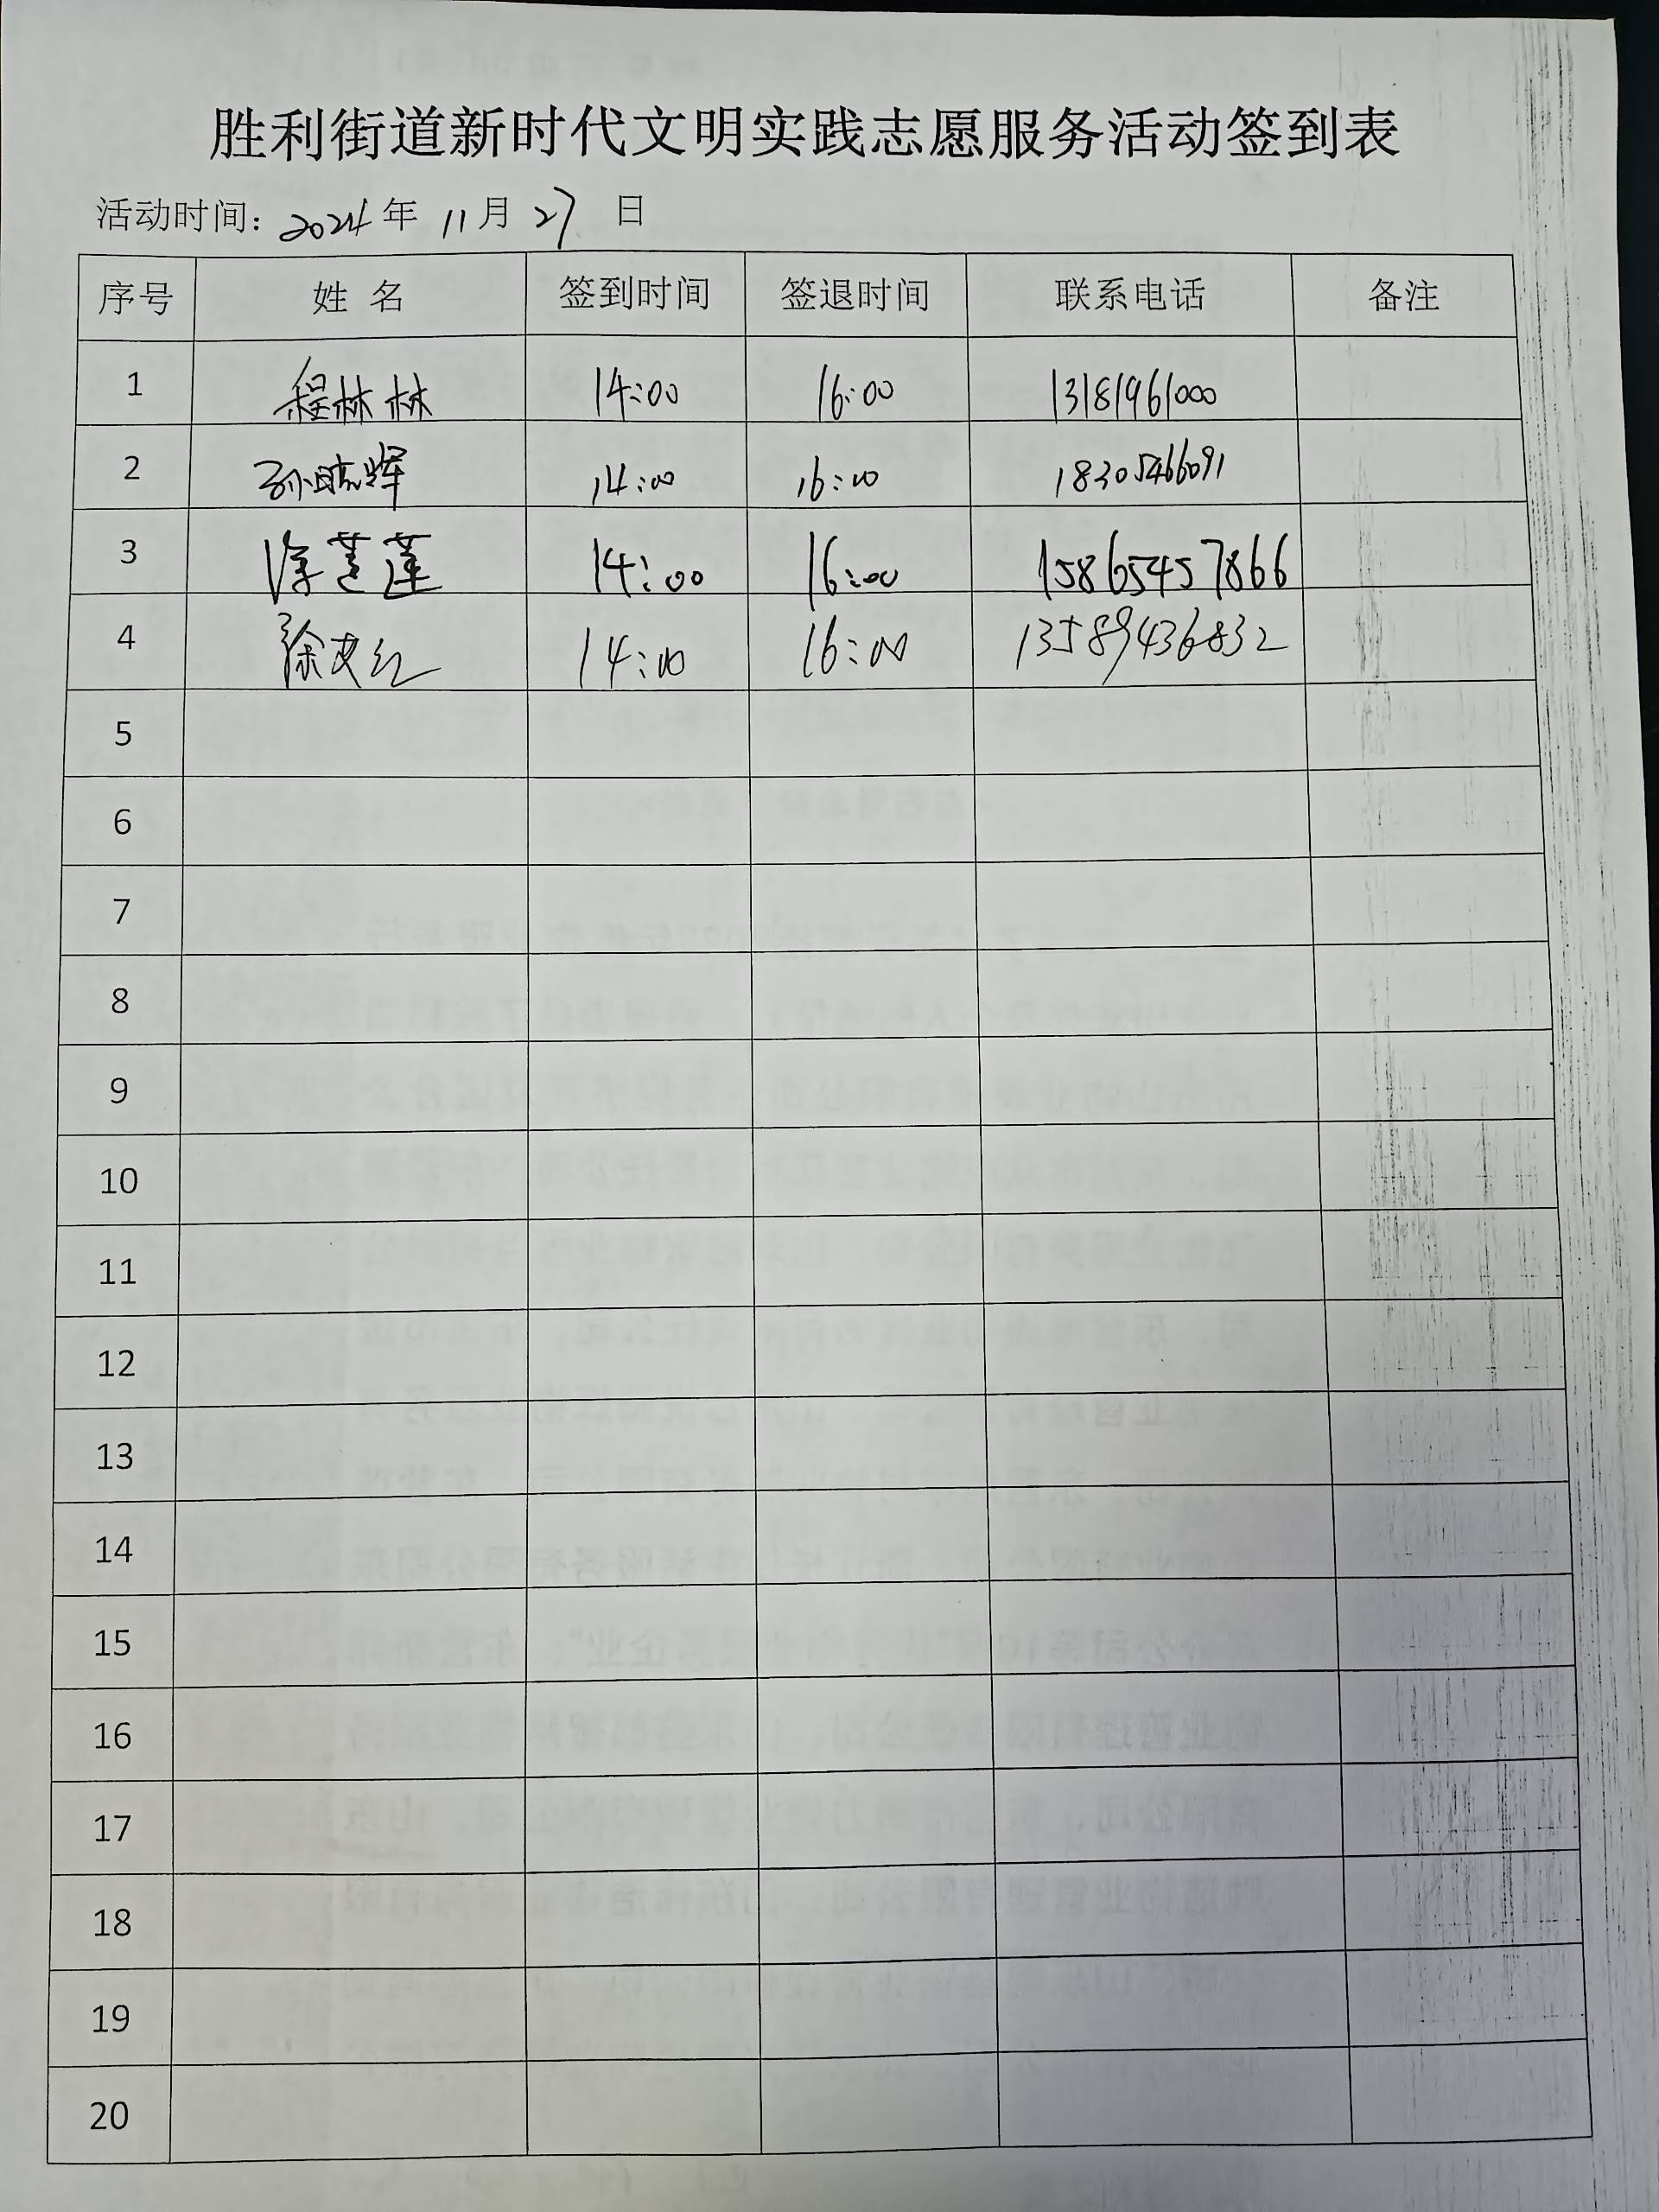 胜利街道新时代文明实践志愿服务活动签到表
活动时间: 2024 年 11 月 27 日
序号 姓 名 签到时间 签退时间 联系电话 备注
1 程林林 14:00 16:00 13181961000
2 孙晓辉 14:00 16:00 18305466091
3 14:00 16:00 15865457866
4 14:00 16:00 13589436832
5
6
7
8
9
10
11
12
13
14
15
16
17
18
19
20